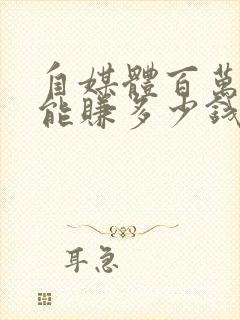 自媒體百萬
能賺多少錢
耳急